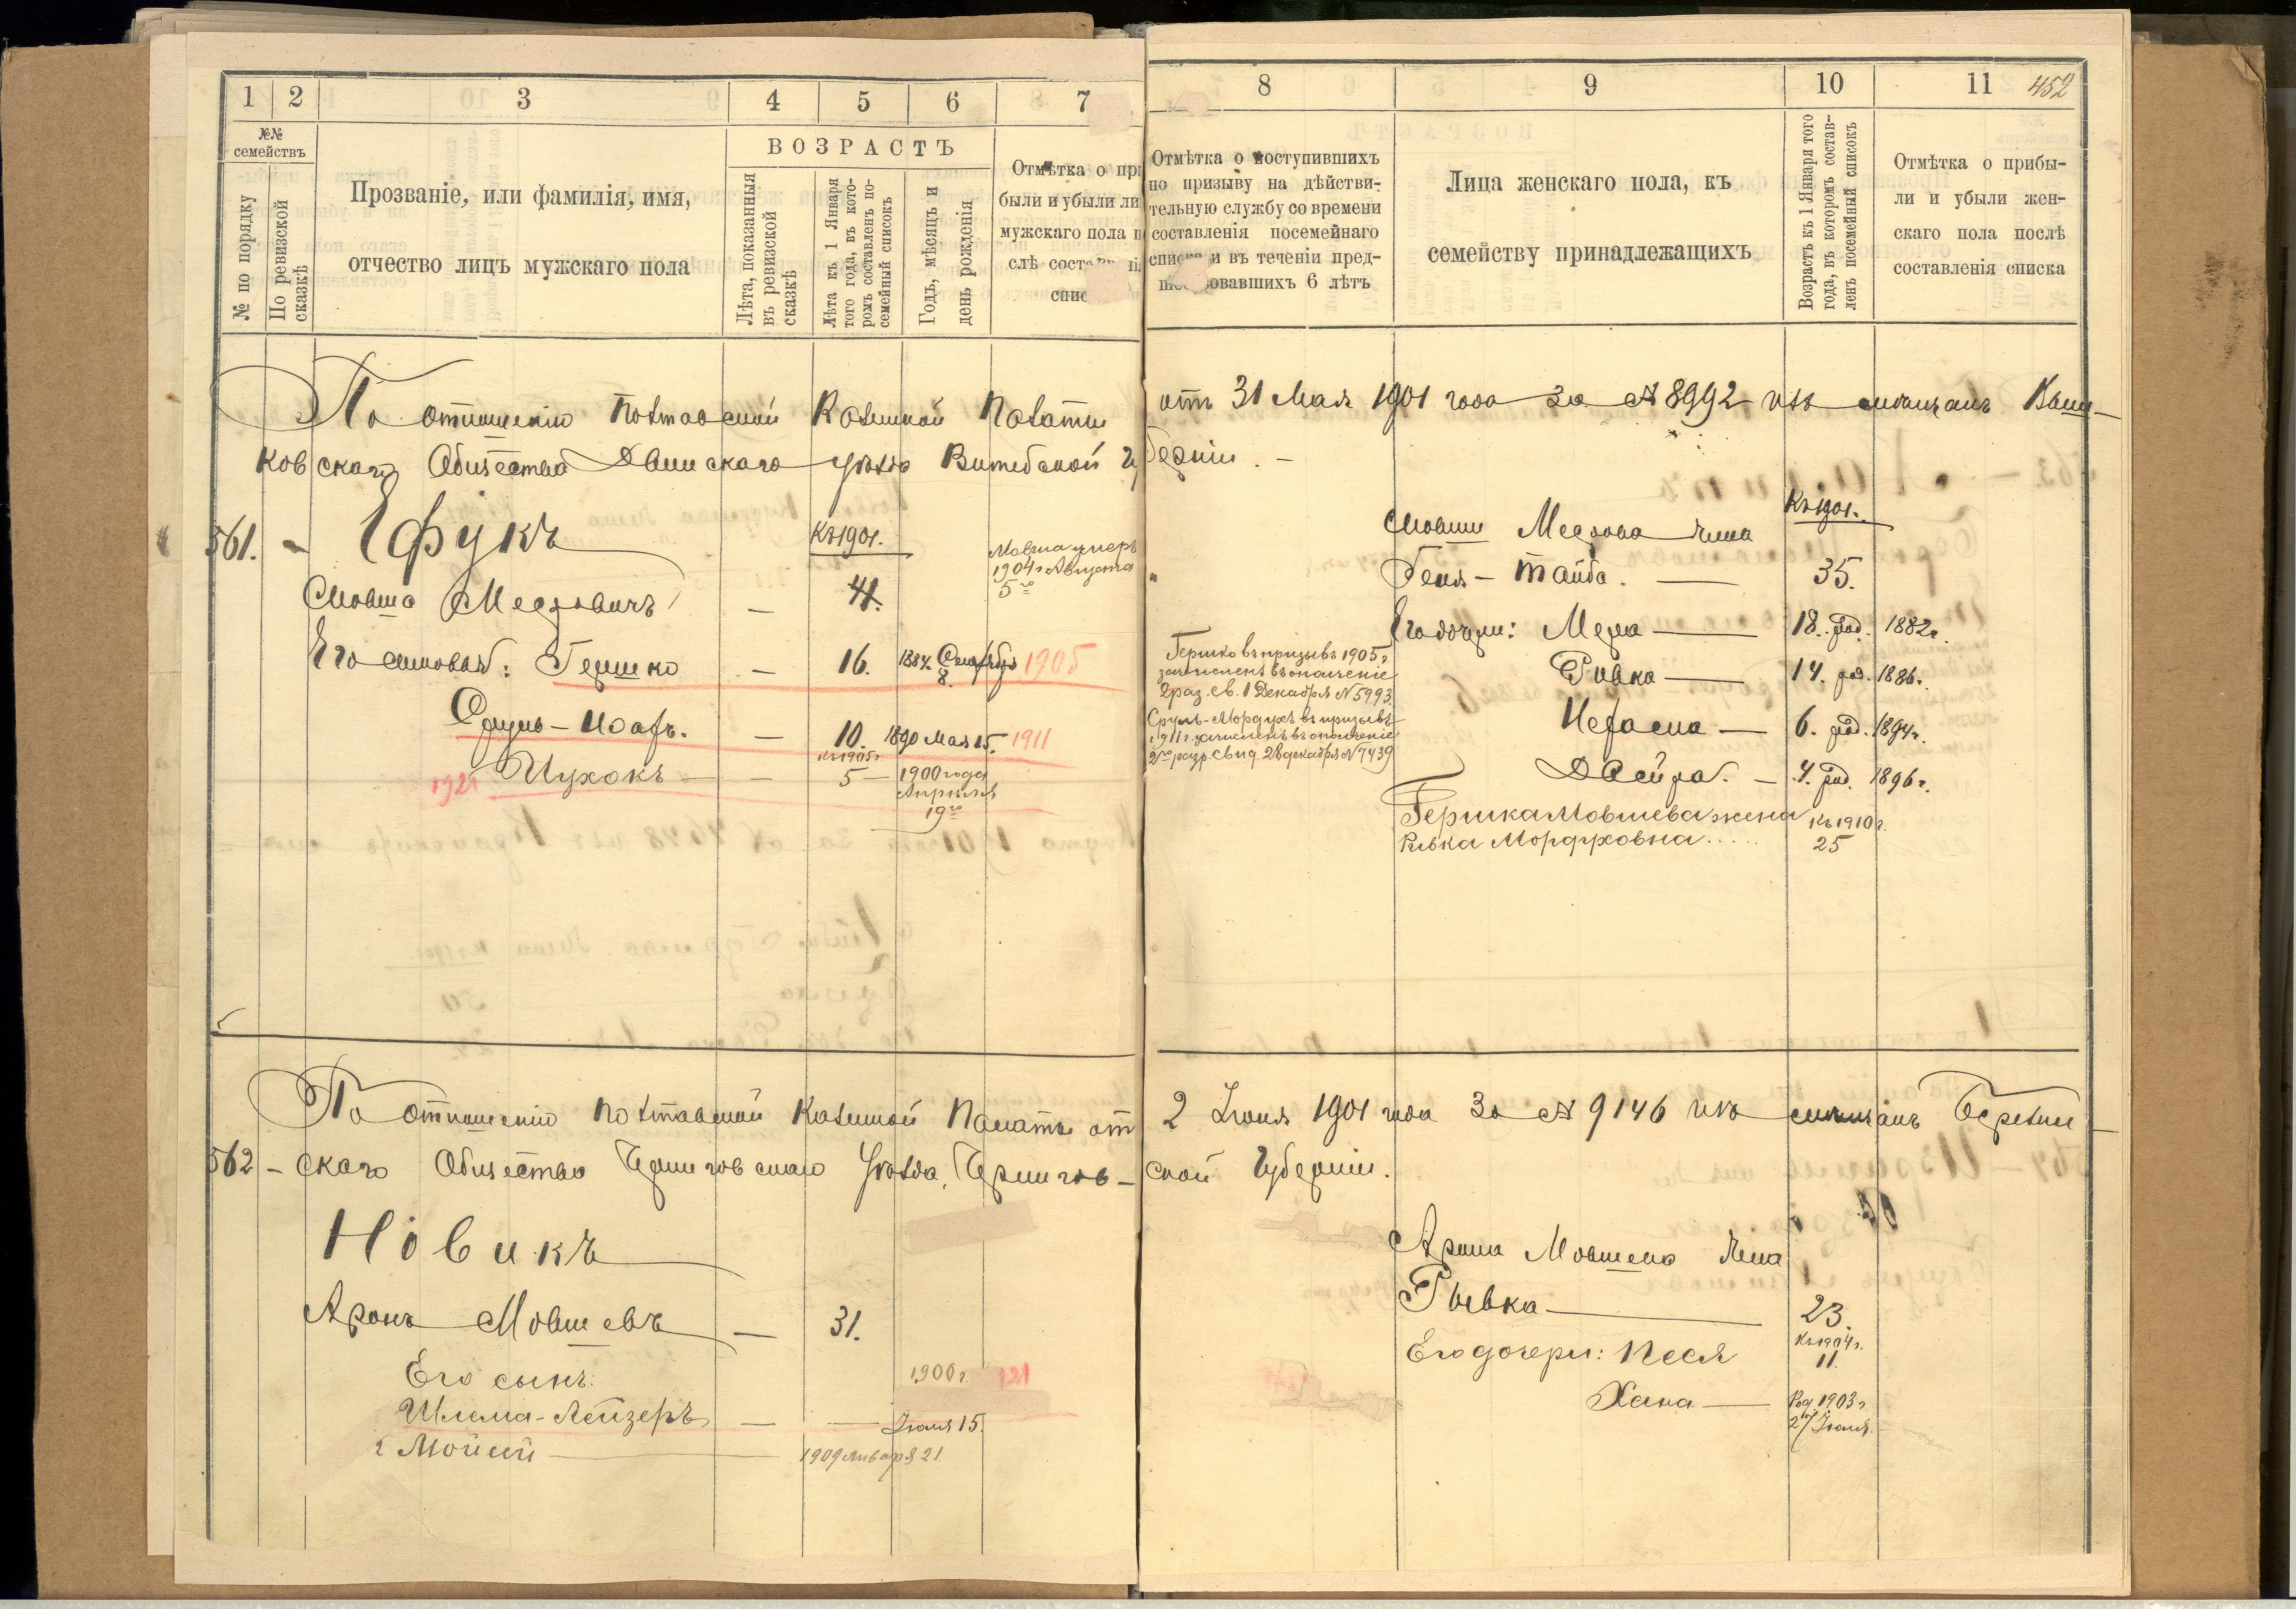 1 2 3 4 5 6 7
№№ семействъ
№ по порядку
По ревизской сказкѣ
Прозваніе, или фамилія, имя,
отчество лицъ мужскаго пола
ВОЗРАСТЪ
Лѣта, показанныя
въ ревизской
сказкѣ
Лѣта къ 1 Января
того года, въ кото-
ромъ составленъ по-
семейный списокъ
Годъ, мѣсяцъ и
день рожденія
Отмѣтка о при
были и убыли ли
мужскаго пола п
слѣ состав
спис
По отношенію Полтавской Казенной Палаты
ковскаго Общества Двинскаго уѣзда Витебской Гу
561.
Къ 1901.
Мовша умеръ
1904 г Августа
5го
41.
Его сыновья: Гершко — 16. 1884. 8. 1905
— 10. 1890 Мая 15. 1911
Къ 1905 г
1921 — — 5 — 1900 года
Апрѣля
19го
По отношенію Полтавской Казенной Палаты от
562 — скаго Общества Черниговскаго Уѣзда, Чернигов—
Новикъ
Аронъ Мовшевъ — 31.
Его сынъ: 1900 г. 121
Шлема-Лейзеръ — — Іюля 15.
1909 января 21
8 9 10 11 452
Отмѣтка о поступившихъ
по призыву на дѣйстви-
тельную службу со времени
составленія посемейнаго
списка и въ теченіи пред-
шествовавшихъ 6 лѣтъ
Лица женскаго пола, къ
семейству принадлежащихъ
Возрастъ къ 1 Января того
года, въ которомъ состав-
ленъ посемейный списокъ
Отмѣтка о прибы-
ли и убыли жен-
скаго пола послѣ
составленія списка
отъ 31 Мая 1901 года за № 8992 изъ мѣщанъ Выш—
берніи. —
Къ 1901.
Мовши жена
— Тайба. — 35.
Его дочери: Мера — 18. род. 1882 г.
Ривка — 14. род. 1886 г.
— 6. род. 1894 г.
— 4. род. 1896 г.
Гершка Мовшева жена Къ 1910 г.
Ривка Мордуховна..... 25
Гершко въ призывъ 1905 г.
зачисленъ въ ополченіе
2 раз. св. 1 Декабря № 5993
Сруль-Мордухъ въ призывъ
1911 г. зачисленъ въ ополченіе
2го разр. Свид. 28 декабря № 7439
2 Іюня 1901 года за № 9146 изъ мѣщанъ Березин—
ской Губерніи.
Арона Мовшева жена
Рывка — 23.
Къ 1904 г.
Его дочери: Песя 11.
Хана — Род. 1903 г
27 Іюля.